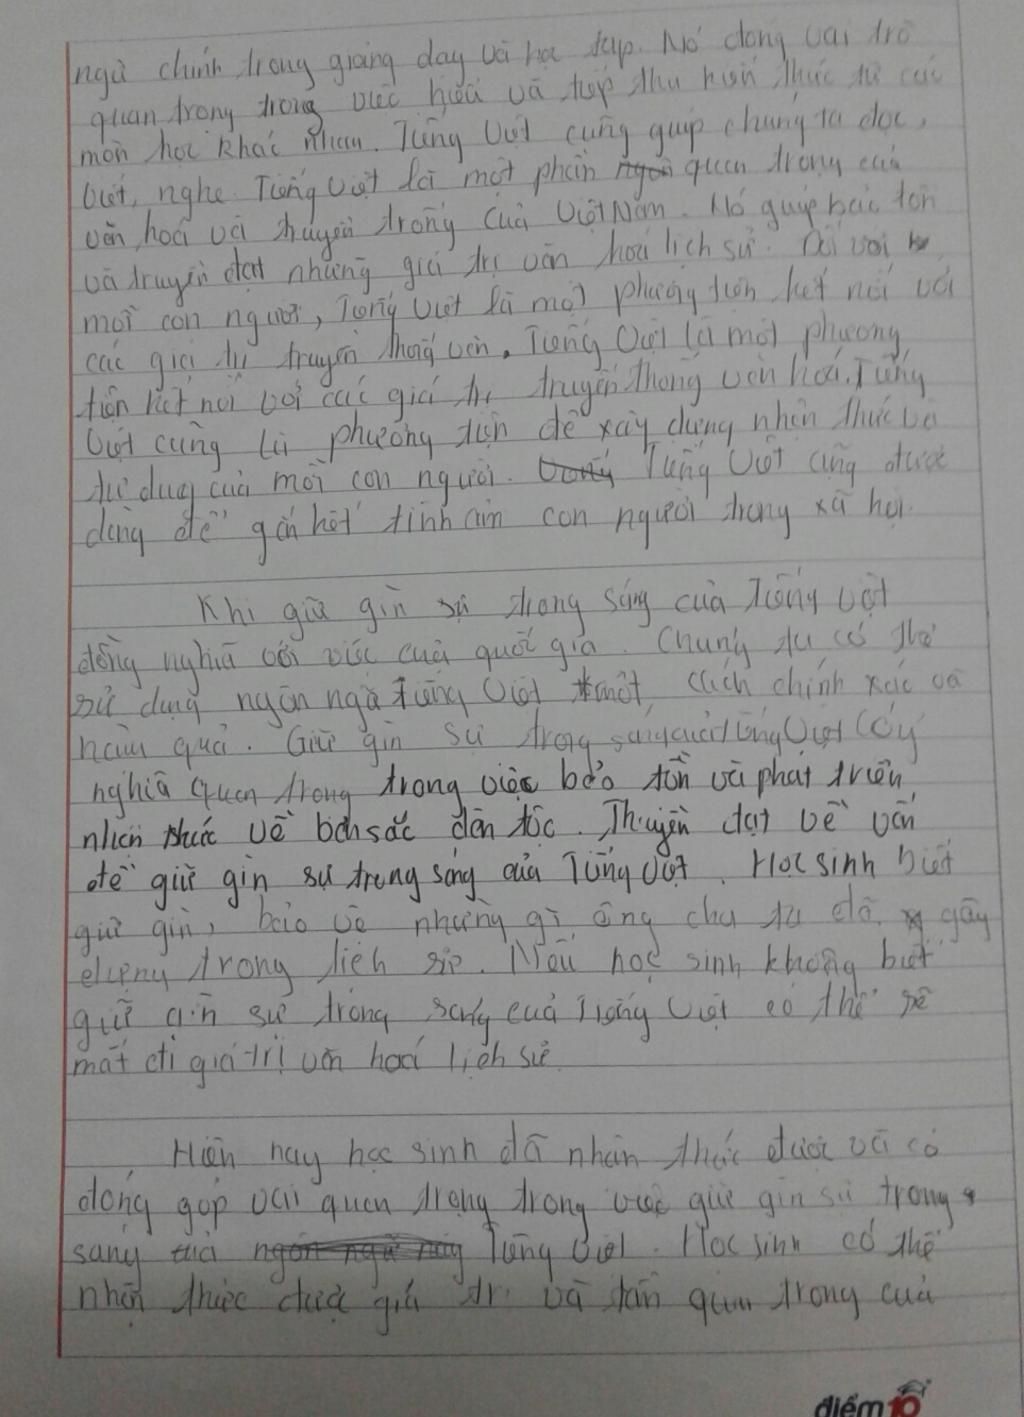 ngữ chính trong giảng dạy và học tập. Nó đóng vai trò
quan trọng trong việc hiểu và tiếp thu kiến thức từ các
môn học khác nhau. Tiếng Việt cũng giúp chúng ta đọc,
viết, nghe. Tiếng Việt là một phần quan trọng của
văn hoá và truyền trống của Việt Nam. Nó giúp bảo tồn
và truyền đạt những giá trị văn hoá lịch sử. Đối với
mỗi con người, Tiếng Việt là một phương tiện kết nối với
các giá trị truyền thống văn. Tiếng Việt là một phương
tiện kết nối với các giá trị truyền thống văn hoá. Tiếng
Việt cũng là phương tiện để xây dựng nhận thức và
tư duy của mỗi con người. Tiếng Việt cũng được
dùng để gắn kết tình cảm con người trong xã hội.
Khi giữ gìn sự trong sáng của Tiếng Việt
đồng nghĩa với việc của quốc gia. Chúng ta có thể
sử dụng ngôn ngữ Tiếng Việt một cách chính xác và
hàu quả. Giữ gìn sự trong sáng của Tiếng Việt có ý
nghĩa quan trọng trong việc bảo tồn và phát triển
nhận thức về bản sắc dân tộc. Thuyền đạt về vấn
đề giữ gìn sự trong sáng của Tiếng Việt. Học sinh biết
giữ gìn, bảo vệ những gì ông cha ta đã gây
dựng trong lịch sử. Nếu học sinh không biết
giữ gìn sự trong sáng của Tiếng Việt có thể sẽ
mất đi giá trị văn hoá lịch sử.
Hiện nay học sinh đã nhận thức được và có
đóng góp vai quan trọng trong việc giữ gìn sự trong
sáng của Tiếng Việt. Học sinh có thể
nhận thức được giá trị và tầm quan trọng của
điểm 10